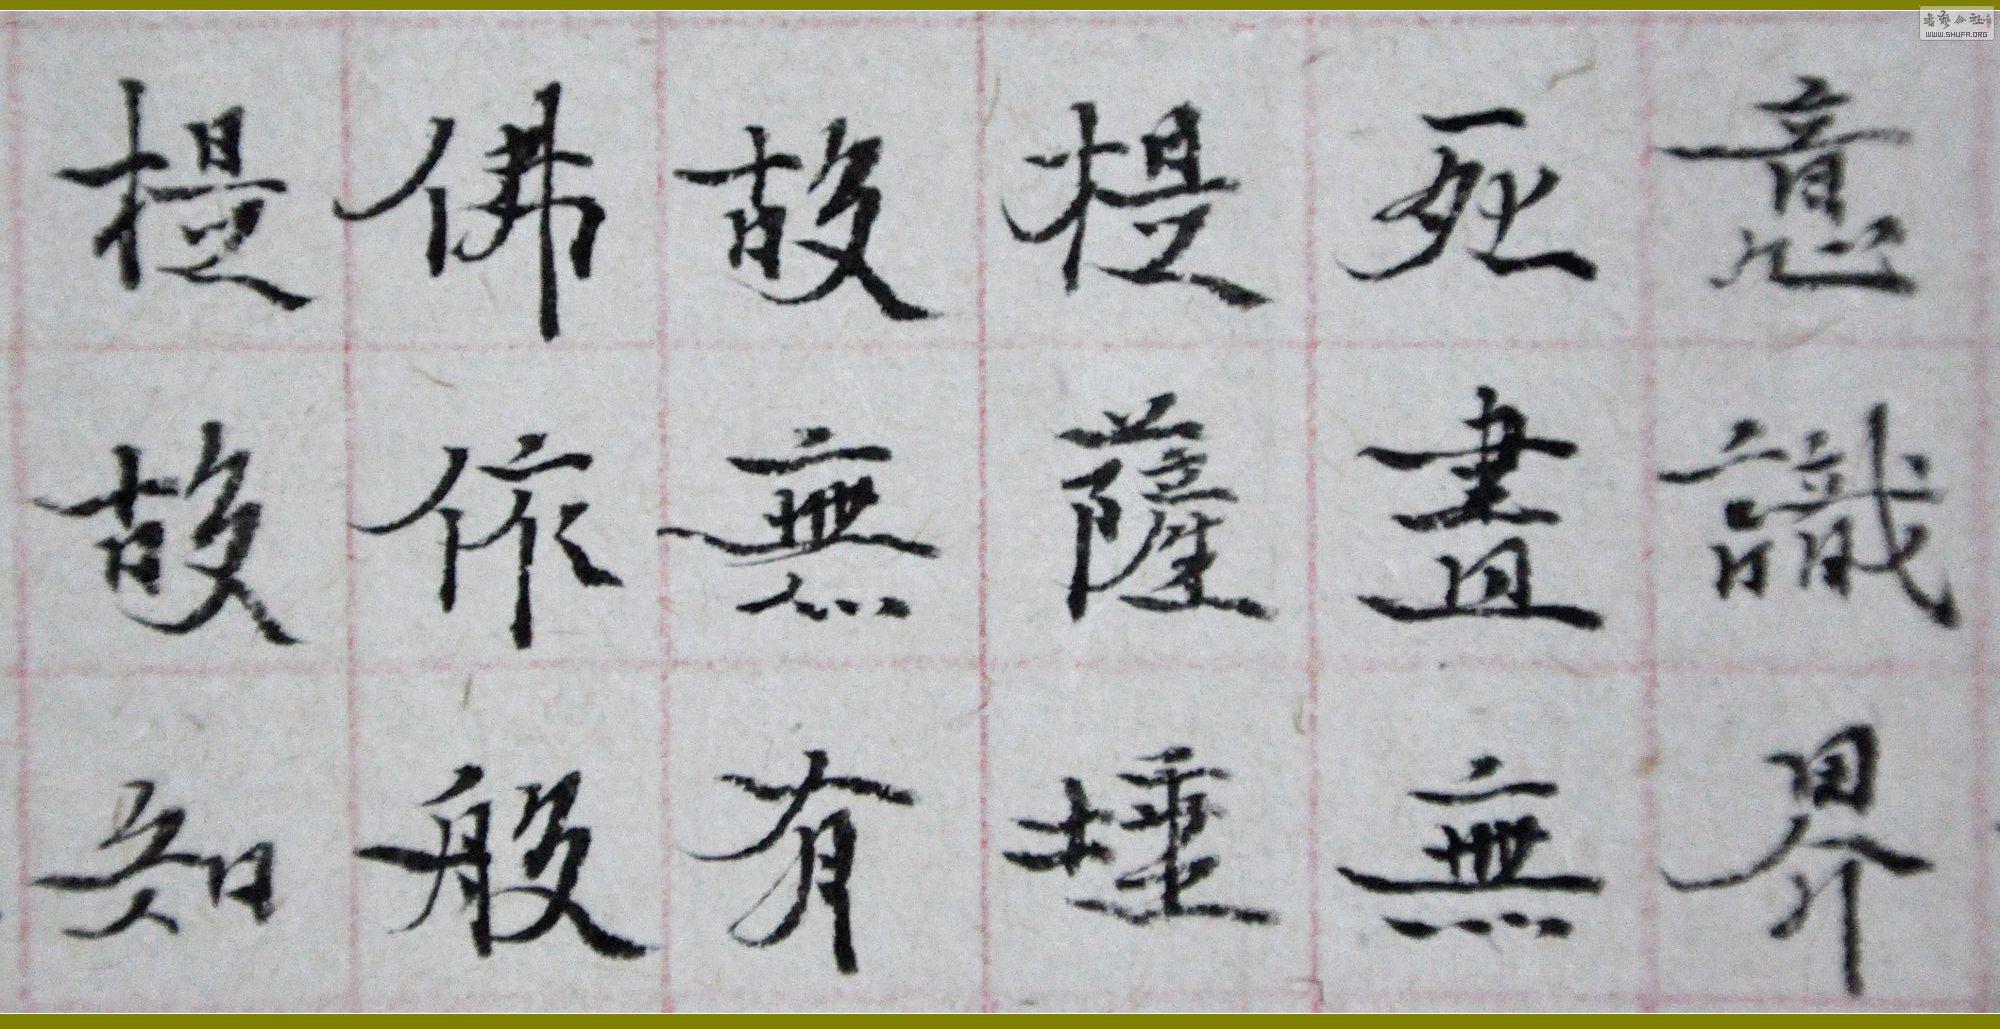 意識界
死盡無
提薩埵
故無有
佛依般
提故知
WWW.SHUFA.ORG